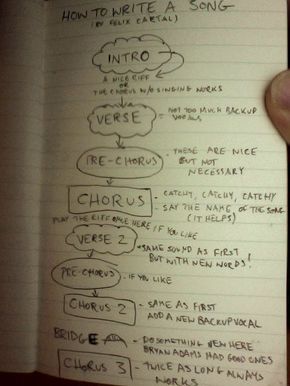 HOW TO WRITE A SONG
(BY FELIX CARTAL)
INTRO
A NICE RIFF
OR
THE CHORUS W/O SINGING WORKS
VERSE - NOT TOO MUCH BACKUP
VOCALS
PRE-CHORUS - THESE ARE NICE
BUT NOT
NECESSARY
CHORUS - CATCHY, CATCHY, CATCHY
- SAY THE NAME OF THE SONG
(IT HELPS)
PLAY THE RIFF ONCE HERE IF YOU LIKE
VERSE 2 - SAME SOUND AS FIRST
BUT WITH NEW WORDS!
PRE-CHORUS - IF YOU LIKE
CHORUS 2 - SAME AS FIRST
ADD A NEW BACKUP VOCAL
BRIDGE - DO SOMETHING NEW HERE
BRYAN ADAMS HAD GOOD ONES
CHORUS 3 - TWICE AS LONG ALWAYS
WORKS